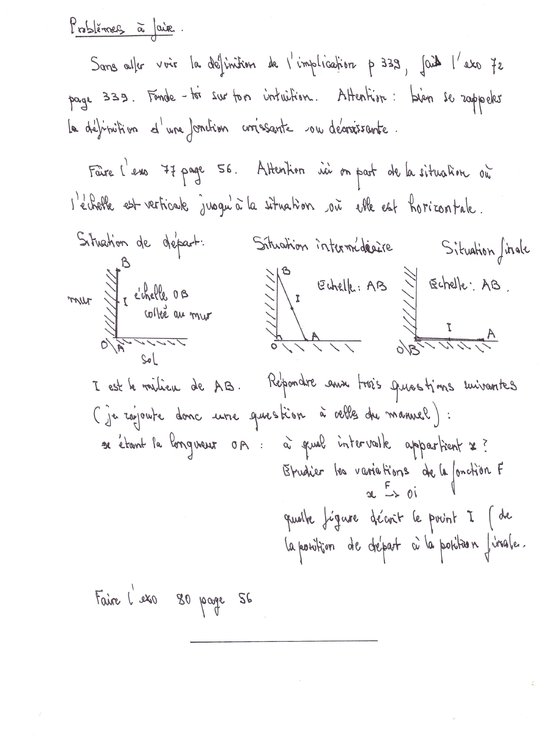 Problèmes à faire.
Sans aller voir la définition de l'implication p 339, fais l'exo 72
page 339. Fonde-toi sur ton intuition. Attention : bien se rappeler
la définition d'une fonction croissante ou décroissante.
Faire l'exo 77 page 56. Attention ici on part de la situation où
l'échelle est verticale jusqu'à la situation où elle est horizontale.
Situation de départ:
Situation intermédiaire
Situation finale
B
mur
I
échelle OB
collée au mur
O
A
Sol
B
Echelle: AB
I
O
A
Echelle: AB.
I
A
O
B
I est le milieu de AB. Répondre aux trois questions suivantes
(je rajoute donc une question à celles du manuel) :
x étant la longueur OA : à quel intervalle appartient x ?
Etudier les variations de la fonction F
x F→ OI
quelle figure décrit le point I (de
la position de départ à la position finale.
Faire l'exo 80 page 56